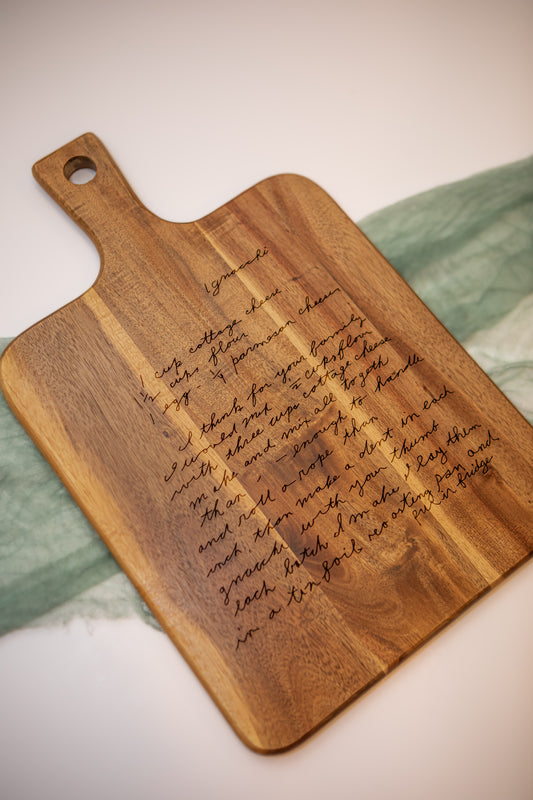 gnocchi
1 cup cottage cheese
1/2 cups flour
1 egg - 1/4 parmesan cheese
I think for your family
I would mix cups flour
with three cups cottage cheese
make and mix all togeth
than - - enough to handle
and roll a rope than
inch, than make a dent in each
gnocchi with your thumb
each batch I make I lay them
in a tin foil roasting pan and
put in fridge